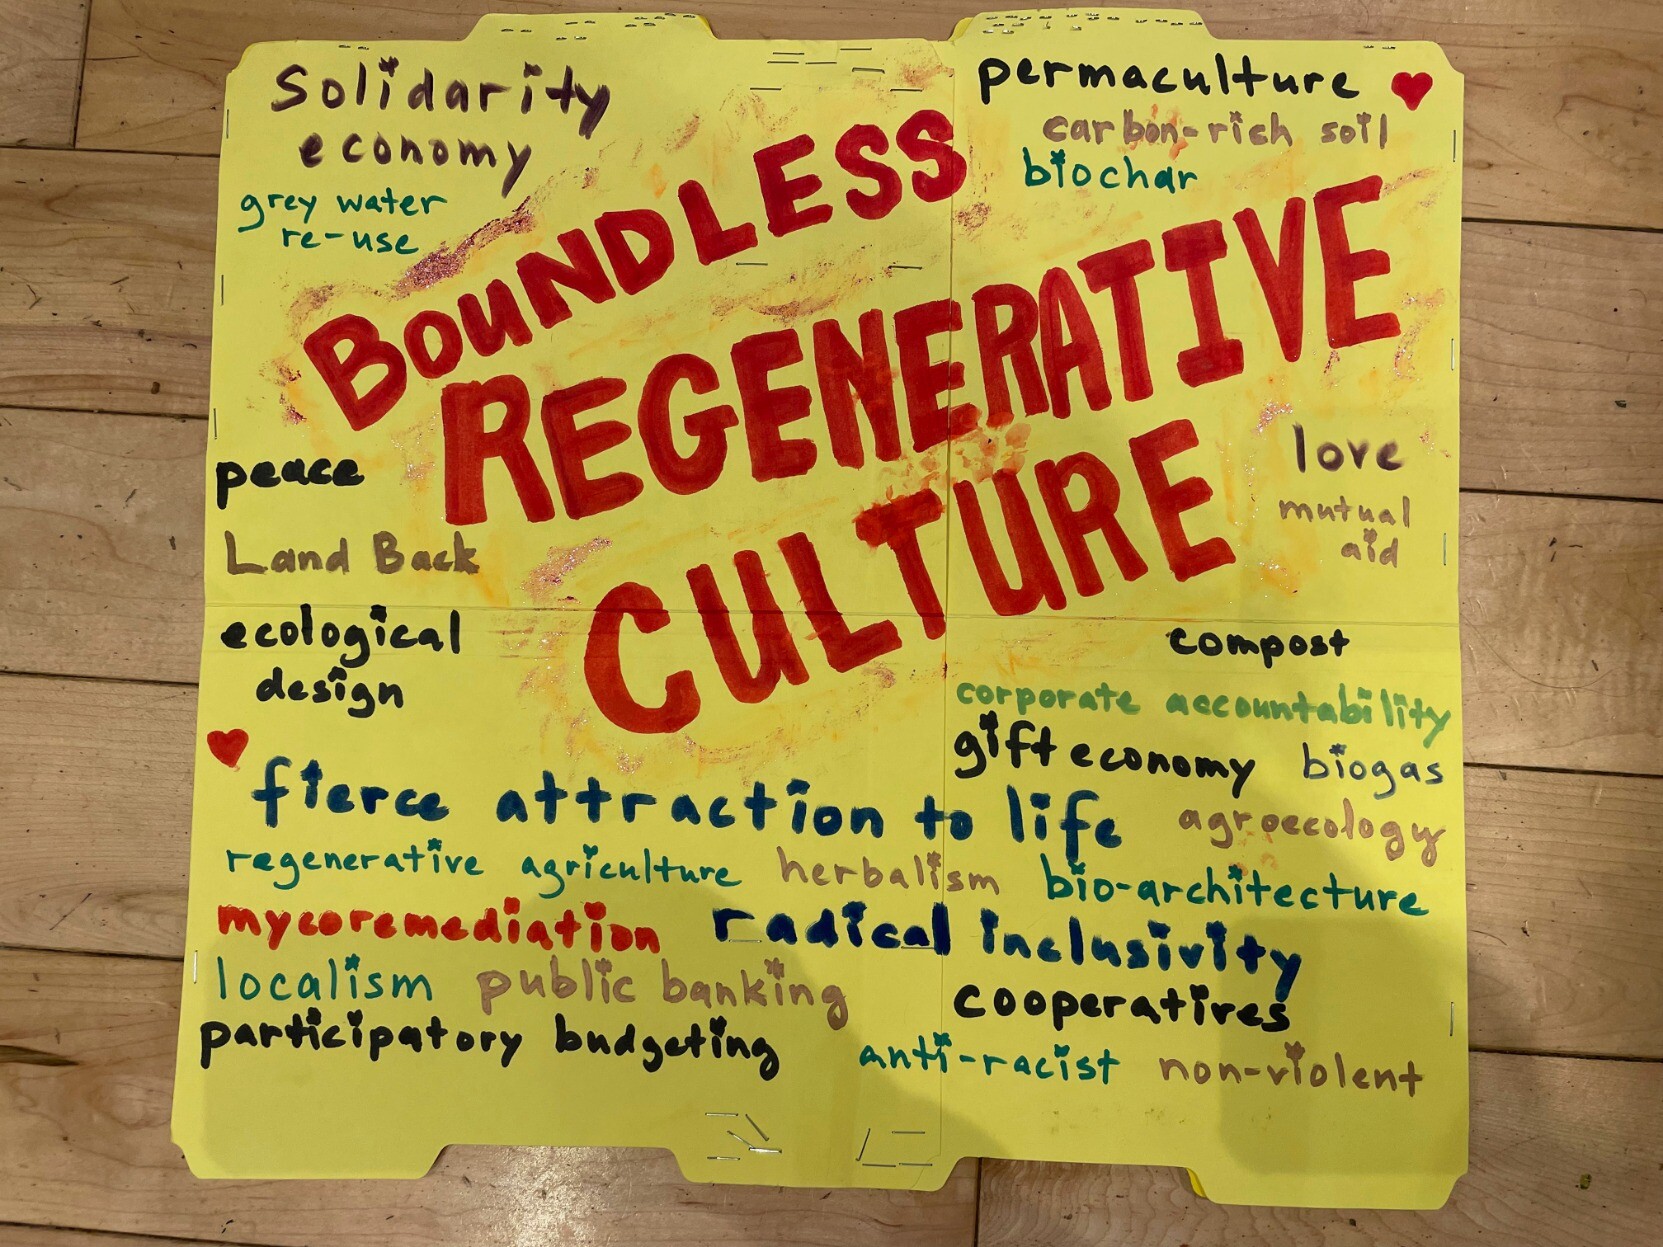 Solidarity
economy
grey water
re-use
permaculture
carbon-rich soil
biochar
BOUNDLESS
REGENERATIVE
CULTURE
peace
Land Back
ecological
design
love
mutual
aid
compost
corporate accountability
gift economy biogas
fierce attraction to life agroecology
regenerative agriculture herbalism bio-architecture
mycoremediation radical inclusivity
localism public banking cooperatives
participatory budgeting anti-racist non-violent